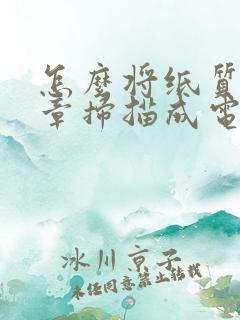 怎麼将纸质
章掃描成電
冰川京子
未经同意禁止转载